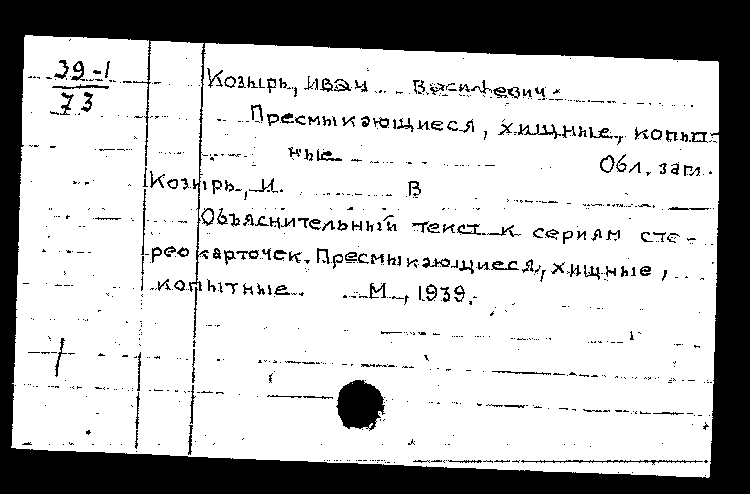 39-1
73
Козырь, Иван Васильевич.
Пресмыкающиеся, хищные, копыт-
ные Обл. загл.
Козырь, И. В
Объяснительный текст к сериям сте-
реокарточек. Пресмыкающиеся, хищные,
копытные. М., 1939.